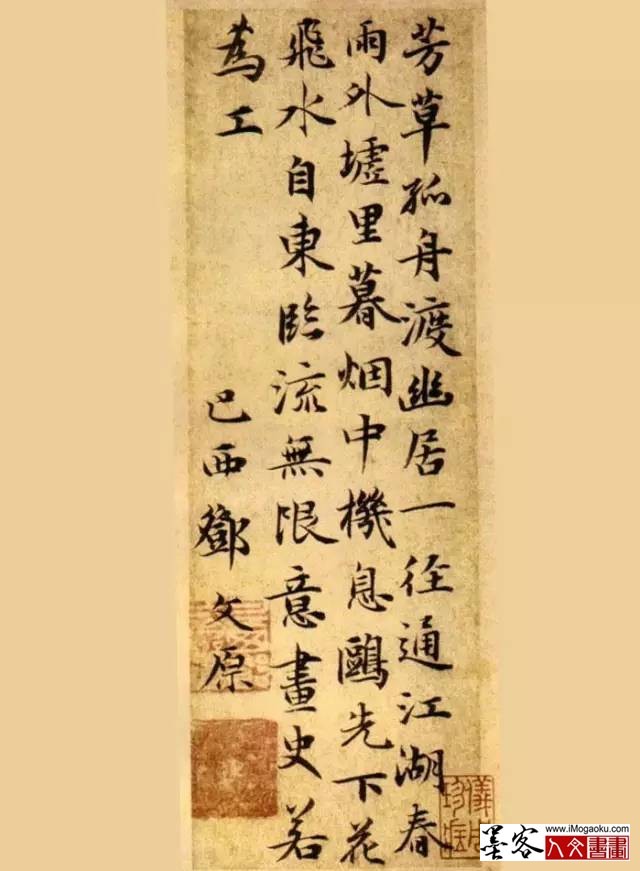 芳草孤舟渡幽居一径通江湖春
雨外墟里暮烟中機息鷗先下花
飛水自東臨流無限意畫史若
為工
巴西鄧文原
www.iMogaoku.com
墨客
人文書畫